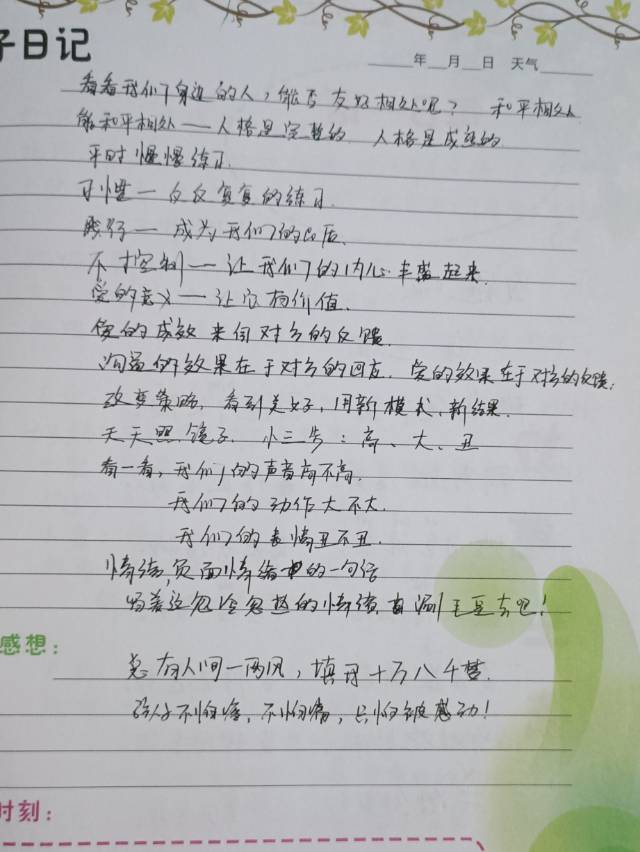 子日记
年 月 日 天气
看看我们身边的人，能否友好相处呢？ 和平相处
能和平相处——人格是完整的 人格是成熟的
平时慢慢练习.
习惯—反反复复的练习.
践行—成为我们的品质.
不控制—让我们的内心丰盛起来.
爱的意义—让它有价值.
爱的成效来自对方的反馈.
沟通的效果在于对方的回应. 爱的效果在于对方的反馈;
改变策略. 看到美好, 用新模式, 新结果.
天天照镜子. 小三告: 高、大、丑
看一看, 我们的声音高不高.
我们的动作大不大.
我们的表情丑不丑.
情绪, 负面情绪中的一句话
带着这忽冷忽热的情绪, 直涮毛豆去吧!
感想:
总有人间一两风, 填我十万八千梦.
孩子不怕疼, 不怕痛, 只怕被感动!
时刻: